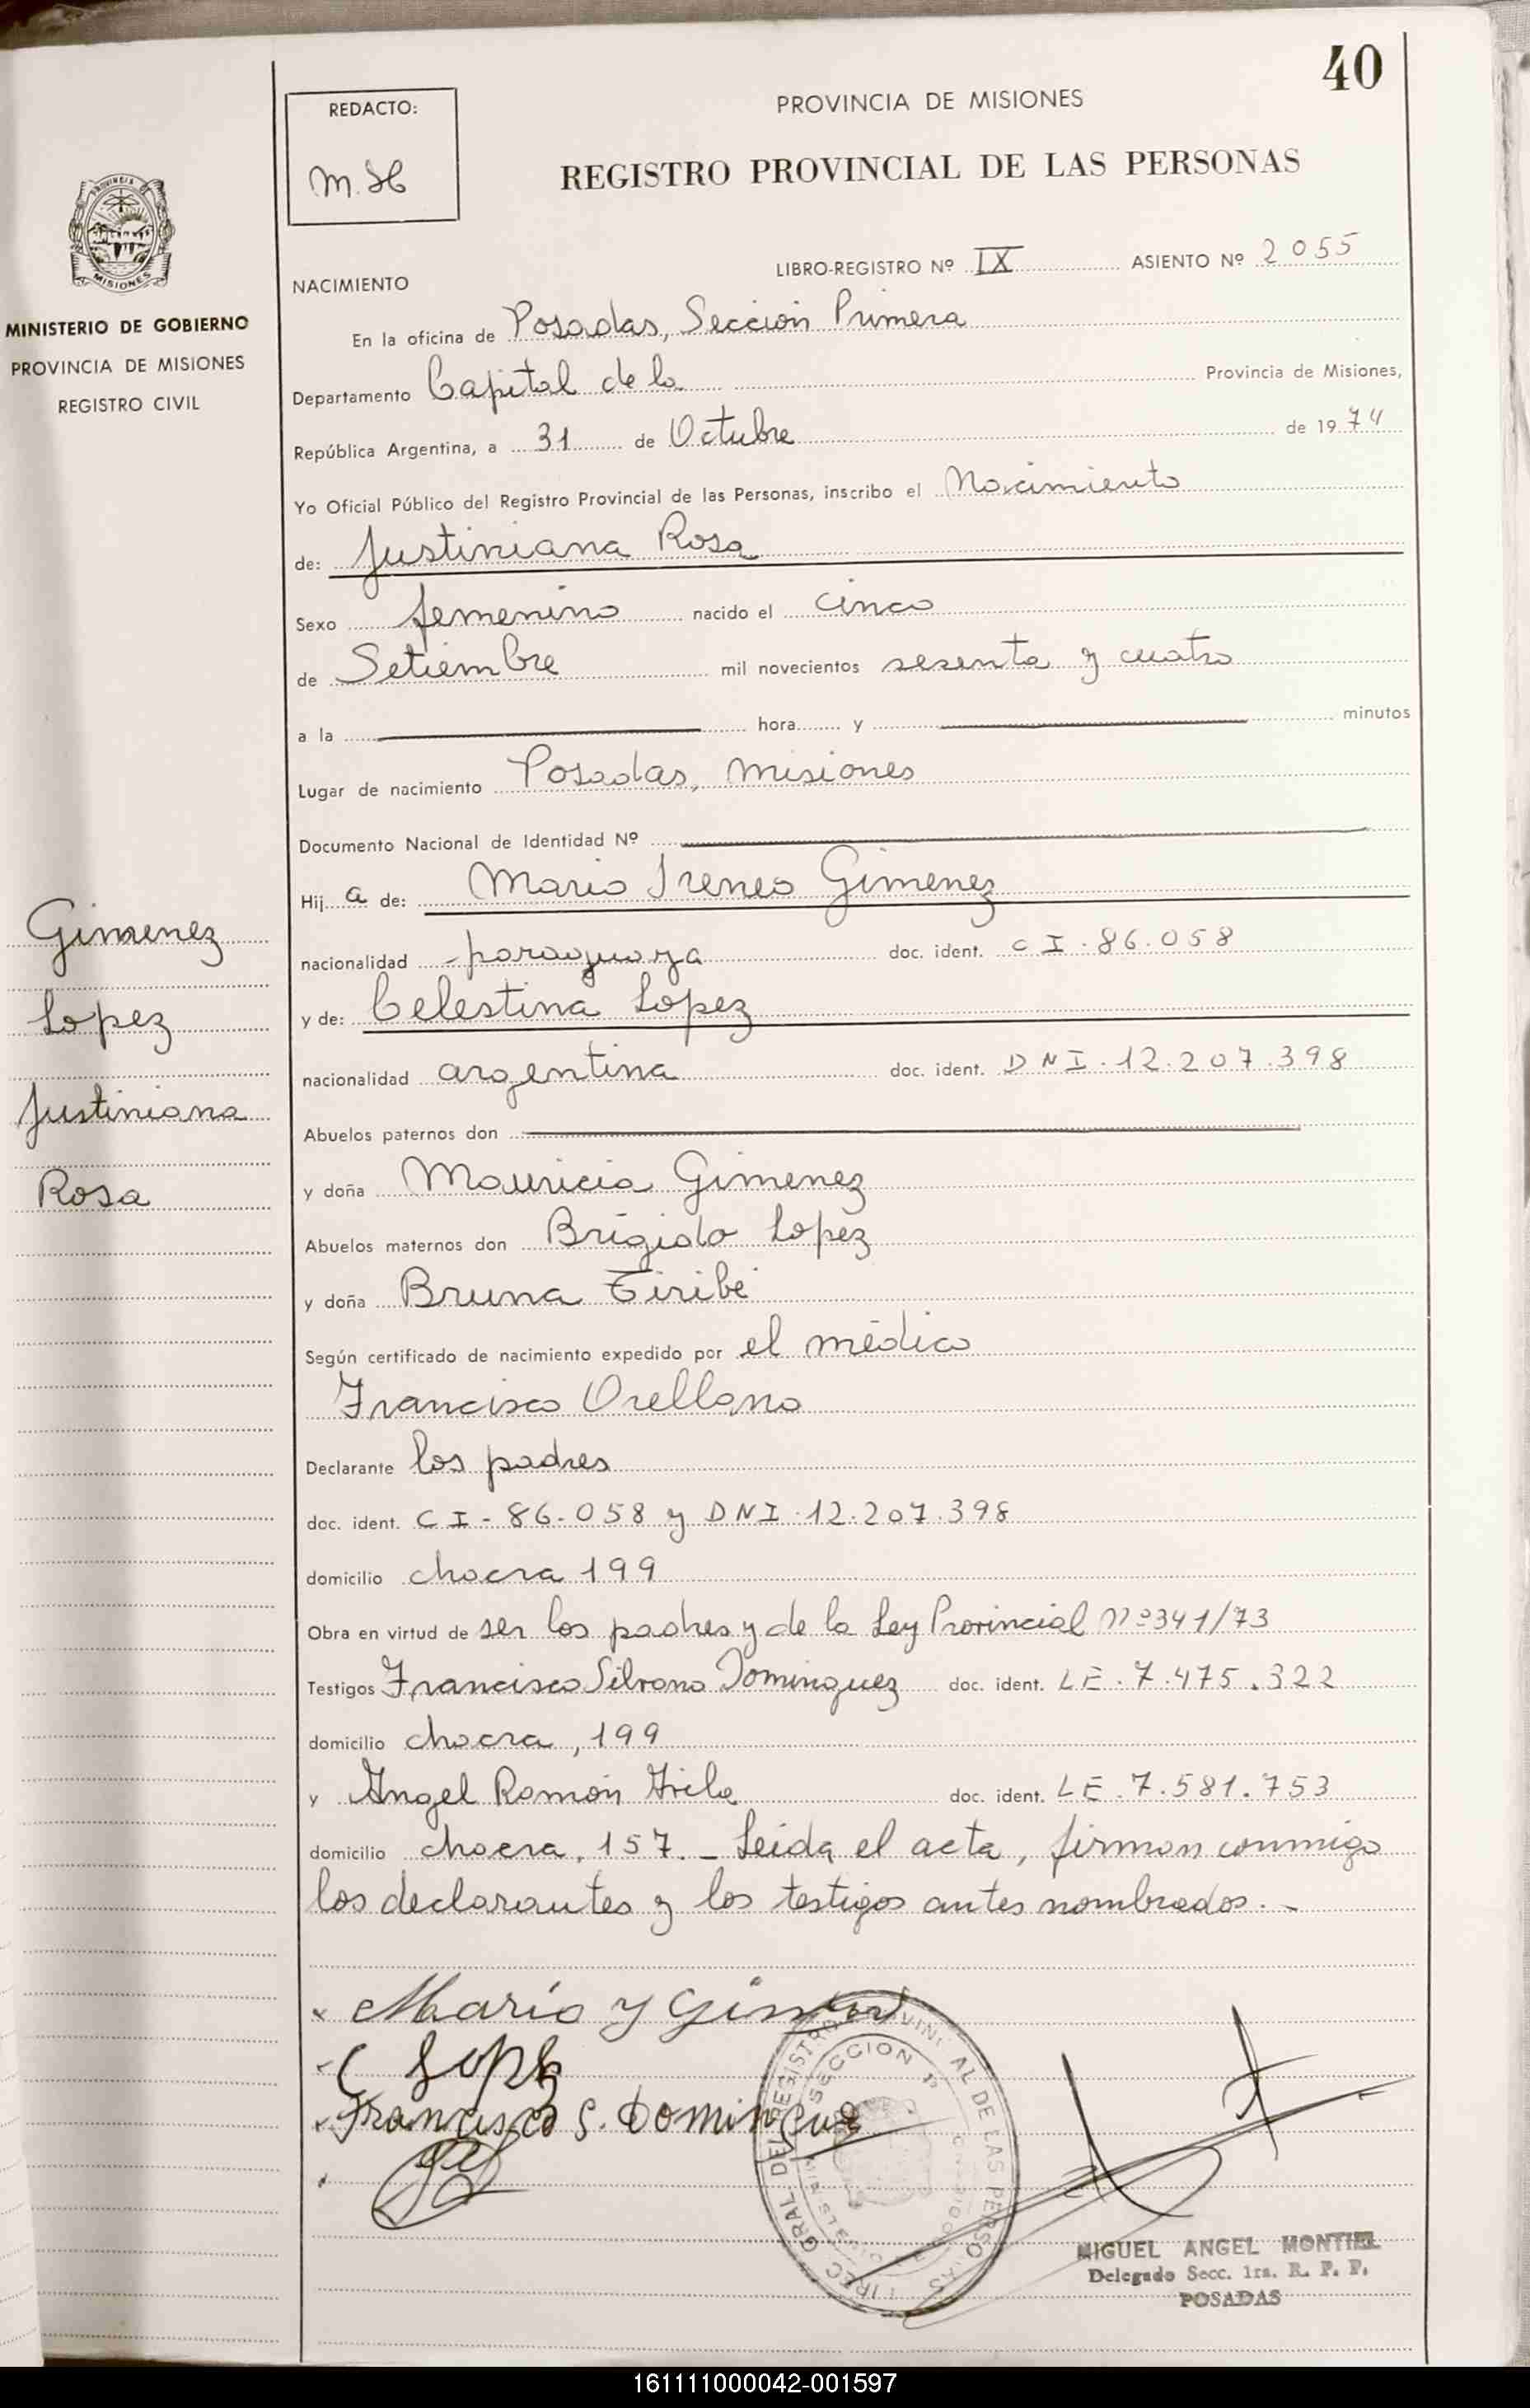 40
REDACTO:
M.H
PROVINCIA DE MISIONES
REGISTRO PROVINCIAL DE LAS PERSONAS
MISIONES
MINISTERIO DE GOBIERNO
PROVINCIA DE MISIONES
REGISTRO CIVIL
NACIMIENTO
LIBRO-REGISTRO Nº IX ASIENTO Nº 2055
En la oficina de Posadas, Sección Primera
Departamento Capital de la Provincia de Misiones,
República Argentina, a 31 de Octubre de 1974
Yo Oficial Público del Registro Provincial de las Personas, inscribo el Nacimiento
de: Justiniana Rosa
Sexo femenino nacido el cinco
de Setiembre mil novecientos sesenta y cuatro
a la hora y minutos
Lugar de nacimiento Posadas, Misiones
Documento Nacional de Identidad Nº
Hij a de: Mario Ireneo Gimenez
nacionalidad paraguaya doc. ident. CI.86.058
y de: Celestina Lopez
nacionalidad argentina doc. ident. DNI.12.207.398
Abuelos paternos don
y doña Mauricia Gimenez
Abuelos maternos don Brígido Lopez
y doña Bruna Tiribé
Según certificado de nacimiento expedido por el médico
Francisco Orellano
Declarante los padres
doc. ident. CI-86.058 y DNI.12.207.398
domicilio chacra 199
Obra en virtud de ser los padres y de la Ley Provincial nº341/73
Testigos Francisco Silvano Dominguez doc. ident. LE.7.475.322
domicilio chacra, 199
y Angel Ramón doc. ident. LE.7.581.753
domicilio chacra, 157.- Leida el acta, firman conmigo
los declarantes y los testigos antes nombrados.-
Gimenez
Lopez
Justiniana
Rosa
Mario y
C Lopz
Francisco S. Dominguez
DIREC GRAL DEL REGISTRO PROVINCIAL DE LAS PERSONAS
SECCION 1ª
MIGUEL ANGEL MONTIEL
Delegado Secc. 1ra. R. P. P.
POSADAS
161111000042-001597